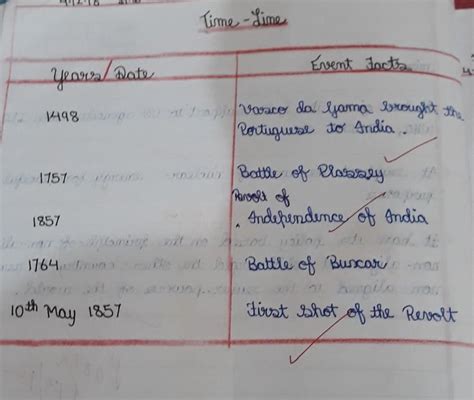 Time-Line
Years/Date Event Facts
1498 Vasco da Gama brought the
Portuguese to India.
1757 Battle of Plassey
Revolt of
1857 . Independence of India
1764 Battle of Buxar
10th May 1857 First Shot of the Revolt